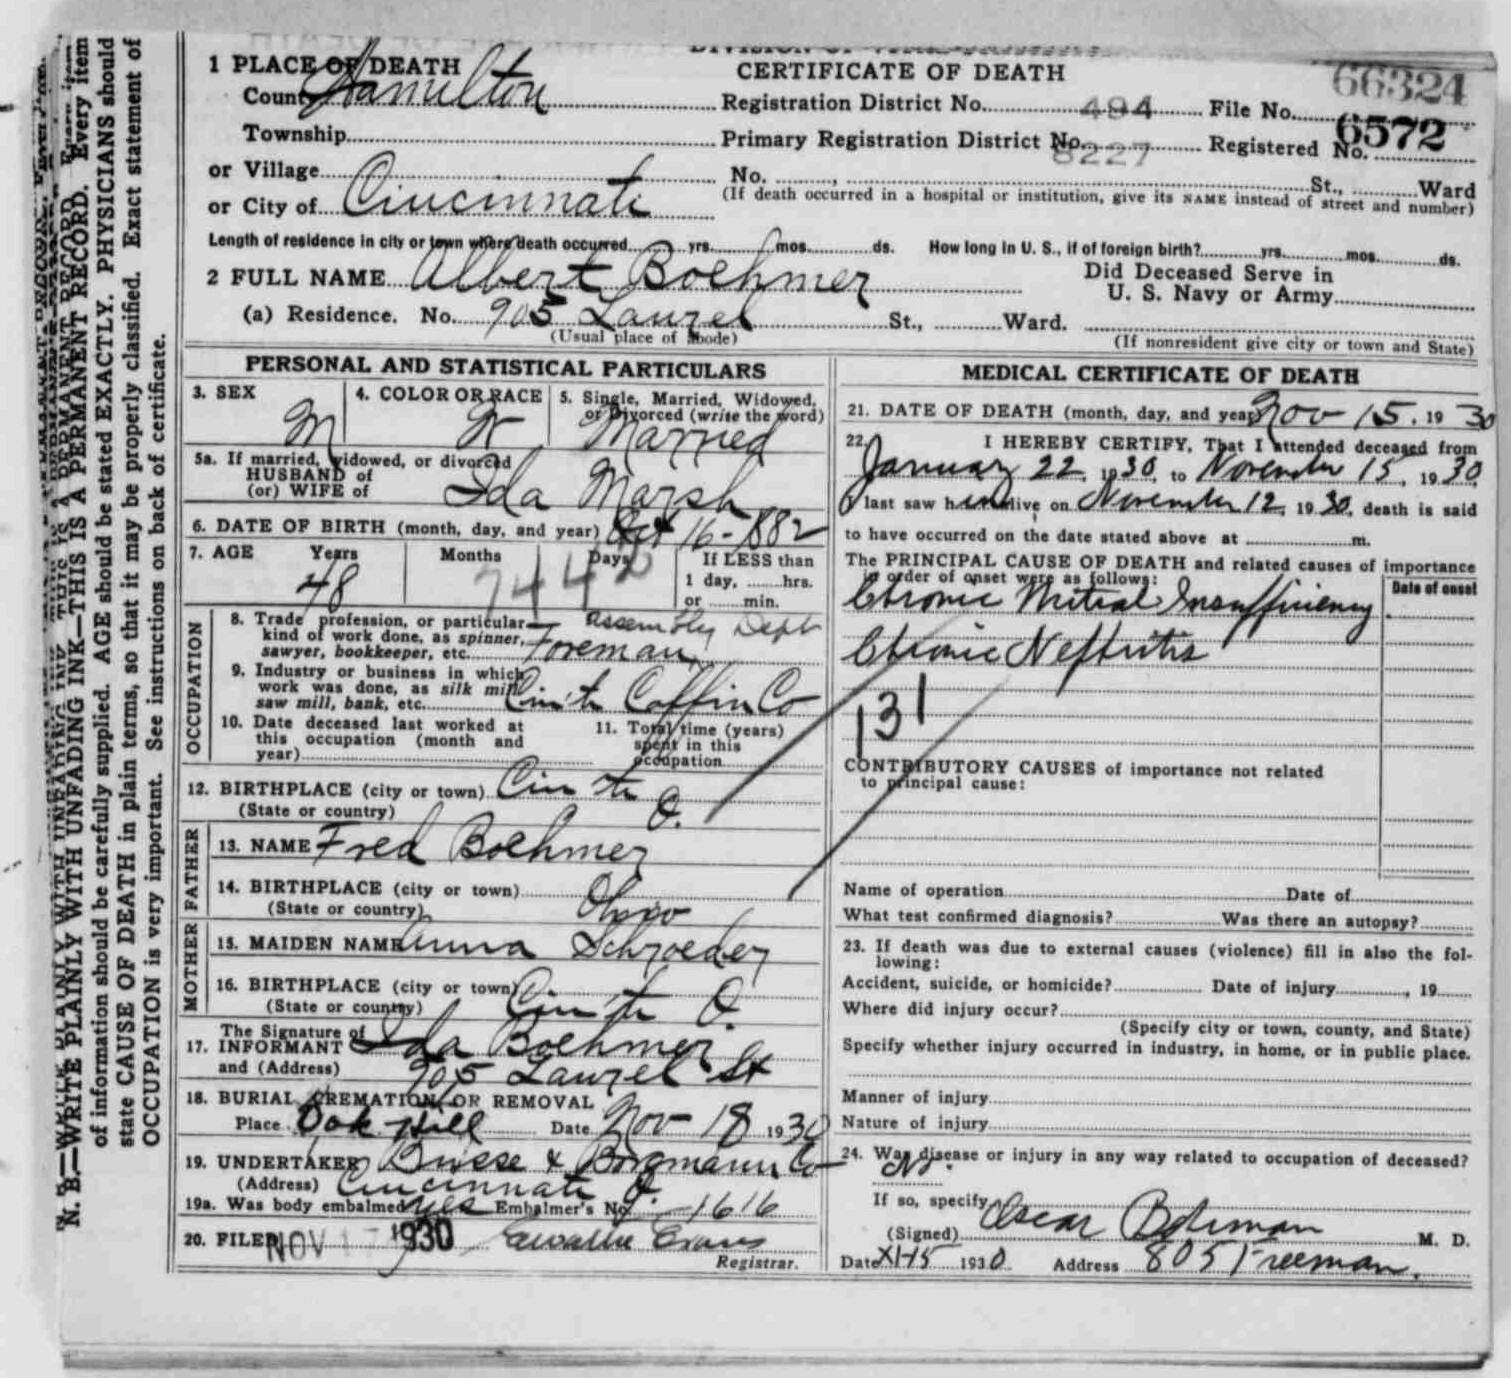 CERTIFICATE OF DEATH
66324
1 PLACE OF DEATH
County Hamilton Registration District No. 494 File No.
6572
Township Primary Registration District No. 8227 Registered No.
or Village No. , St., Ward
(If death occurred in a hospital or institution, give its NAME instead of street and number)
or City of Cincinnati
Length of residence in city or town where death occurred yrs. mos. ds. How long in U. S., if of foreign birth? yrs. mos. ds.
2 FULL NAME Albert Boehmer Did Deceased Serve in
U. S. Navy or Army
(a) Residence. No. 905 Laurel St., Ward.
(Usual place of abode) (If nonresident give city or town and State)
PERSONAL AND STATISTICAL PARTICULARS
3. SEX 4. COLOR OR RACE 5. Single, Married, Widowed,
or Divorced (write the word)
M W Married
5a. If married, widowed, or divorced
HUSBAND of
(or) WIFE of Ida Marsh
6. DATE OF BIRTH (month, day, and year) Oct 16-1882
7. AGE Years Months Days If LESS than
1 day, hrs.
or min.
48
8. Trade, profession, or particular Assembly Dept
kind of work done, as spinner,
sawyer, bookkeeper, etc. Foreman
9. Industry or business in which
work was done, as silk mill,
saw mill, bank, etc. Cin'ti Coffin Co
10. Date deceased last worked at
this occupation (month and
year)
11. Total time (years)
spent in this
occupation
OCCUPATION
12. BIRTHPLACE (city or town) Cin'ti
(State or country) O.
FATHER
13. NAME Fred Boehmer
14. BIRTHPLACE (city or town)
(State or country) Ohio
MOTHER
15. MAIDEN NAME Anna Schroeder
16. BIRTHPLACE (city or town) Cin'ti O.
(State or country)
The Signature of
17. INFORMANT Ida Boehmer
and (Address) 905 Laurel St
18. BURIAL, CREMATION, OR REMOVAL
Place Oak Hill Date Nov 18 1930
19. UNDERTAKER Busse & Borgmann Co
(Address) Cincinnati O.
19a. Was body embalmed yes Embalmer's No. 1616
20. FILED NOV 17 1930
Registrar.
MEDICAL CERTIFICATE OF DEATH
21. DATE OF DEATH (month, day, and year) Nov 15. 1930
22. I HEREBY CERTIFY, That I attended deceased from
January 22, 1930, to November 15, 1930
I last saw him alive on November 12, 1930, death is said
to have occurred on the date stated above at m.
The PRINCIPAL CAUSE OF DEATH and related causes of importance
in order of onset were as follows: Date of onset
Chronic Mitral Insufficiency
Chronic Nefritis
131
CONTRIBUTORY CAUSES of importance not related
to principal cause:
Name of operation Date of
What test confirmed diagnosis? Was there an autopsy?
23. If death was due to external causes (violence) fill in also the fol-
lowing:
Accident, suicide, or homicide? Date of injury , 19
Where did injury occur?
(Specify city or town, county, and State)
Specify whether injury occurred in industry, in home, or in public place.
Manner of injury
Nature of injury
24. Was disease or injury in any way related to occupation of deceased?
No.
If so, specify
(Signed) Oscar M. D.
Date XI-15 1930 Address 805 Freeman.
N. B.—WRITE PLAINLY WITH UNFADING INK—THIS IS A PERMANENT RECORD. Every item
of information should be carefully supplied. AGE should be stated EXACTLY. PHYSICIANS should
state CAUSE OF DEATH in plain terms, so that it may be properly classified. Exact statement of
OCCUPATION is very important. See instructions on back of certificate.